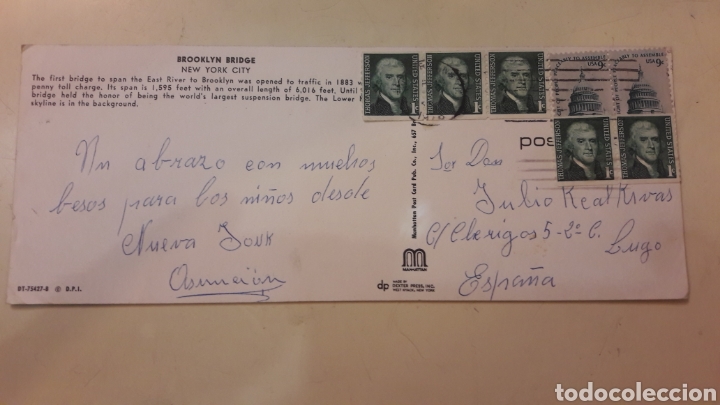 BROOKLYN BRIDGE
NEW YORK CITY
The first bridge to span the East River to Brooklyn was opened to traffic in 1883
penny toll charge. Its span is 1,595 feet with an overall length of 6,016 feet. Until
bridge held the honor of being the world's largest suspension bridge. The Lower
skyline is in the background.
Un abrazo con muchos
besos para los niños desde
Nueva York
Asunción
DT-75427-B © D.P.I.
Manhattan Post Card Pub. Co., Inc., 657
MANHATTAN
dp
MADE BY
DEXTER PRESS, INC.
WEST NYACK, NEW YORK
THOMAS JEFFERSON
UNITED STATES
1c
THOMAS JEFFERSON
UNITED STATES
1c
THOMAS JEFFERSON
UNITED STATES
1c
TO ASSEMBLE
USA 9c
TO ASSEMBLE
USA 9c
pos
THOMAS JEFFERSON
UNITED STATES
1c
THOMAS JEFFERSON
UNITED STATES
1c
Sor Don
Julio Real Rivas
C/ Clerigos 5-2º C.
Lugo
España
todocoleccion